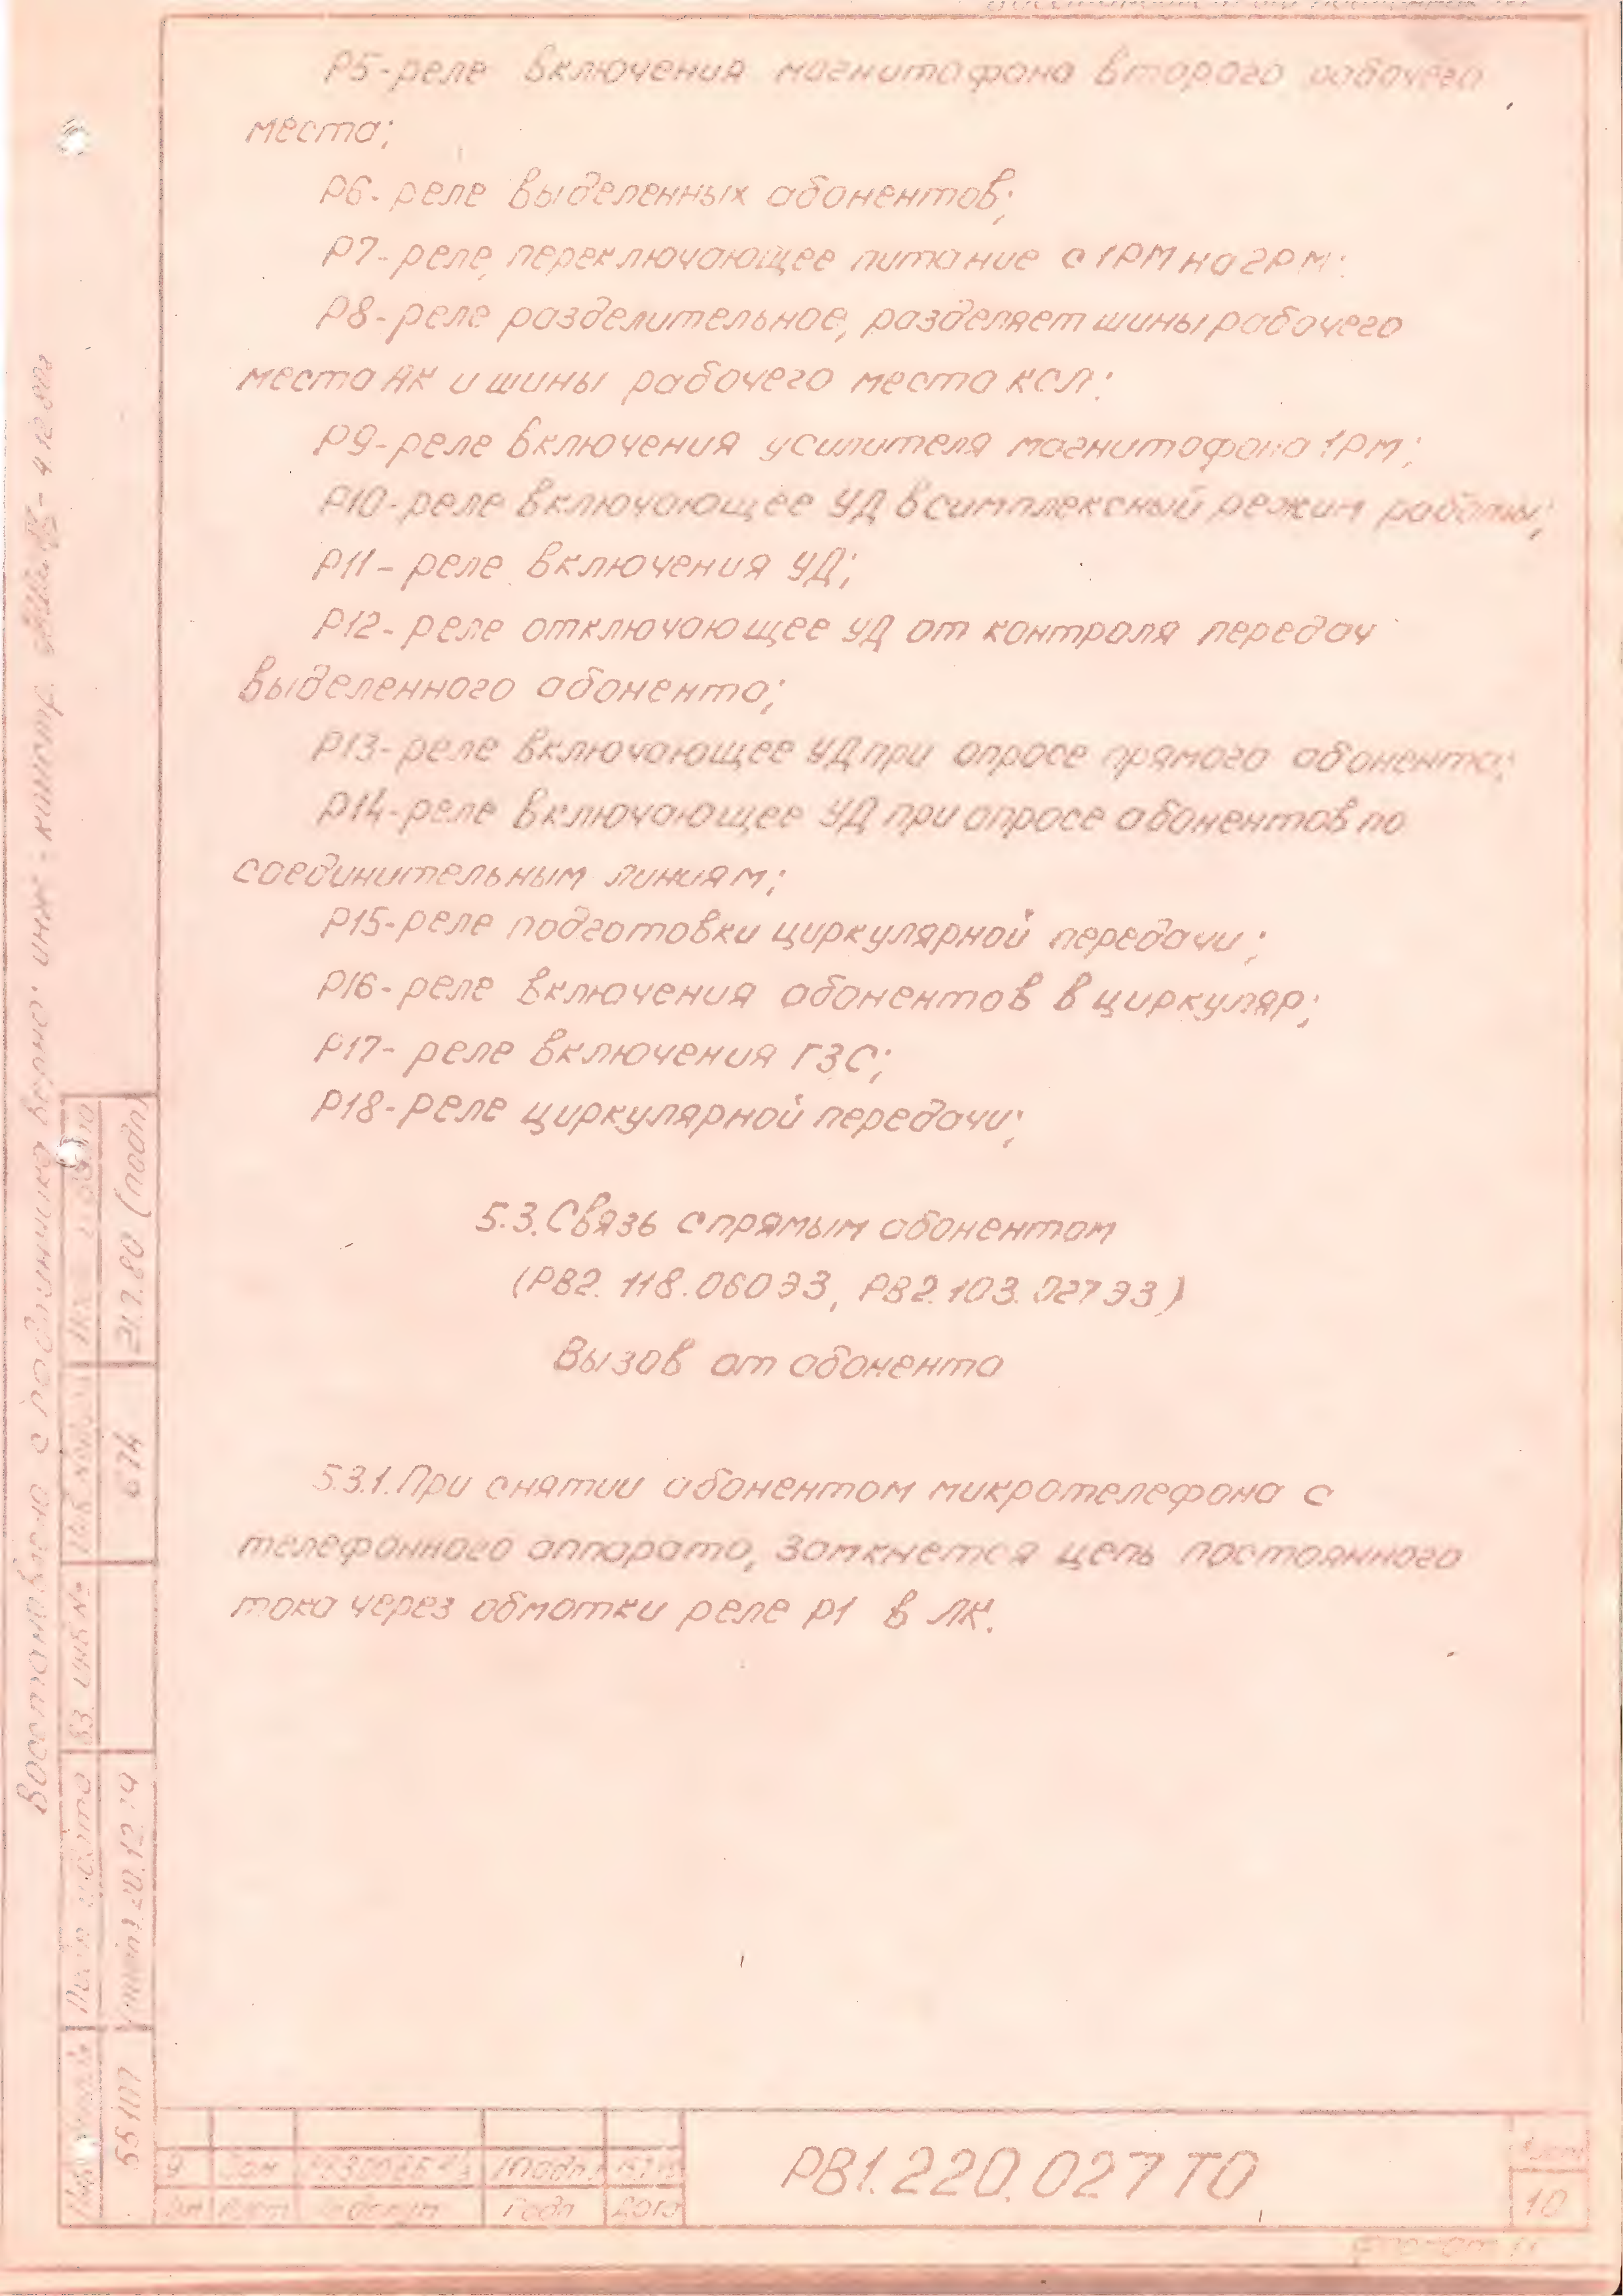 Р5-реле включения магнитофона второго рабочего
места;
Р6-реле выделенных абонентов;
Р7-реле, переключающее питание с 1РМ на 2РМ;
Р8-реле разделительное, разделяет шины рабочего
места АК и шины рабочего места КСЛ;
Р9-реле включения усилителя магнитофона 1РМ;
Р10-реле включающее УД в симплексный режим работы;
Р11-реле включения УД;
Р12-реле отключающее УД от контроля передач
выделенного абонента;
Р13-реле включающее УД при опросе прямого абонента;
Р14-реле включающее УД при опросе абонентов по
соединительным линиям;
Р15-реле подготовки циркулярной передачи;
Р16-реле включения абонентов в циркуляр;
Р17-реле включения ГЗС;
Р18-реле циркулярной передачи;
5.3. Связь с прямым абонентом
(РВ2.118.060ЭЗ, РВ2.103.027ЭЗ)
Вызов от абонента
5.3.1. При снятии абонентом микротелефона с
телефонного аппарата, замкнется цепь постоянного
тока через обмотки реле Р1 в ЛК.
с подлинника верно: инж.
21.7.80 (подп)
674
Вз. инв №
55107
9 Зам
Изм Лист Подп Дата
РВ1.220.027 ТО
Лист
10
формат 11